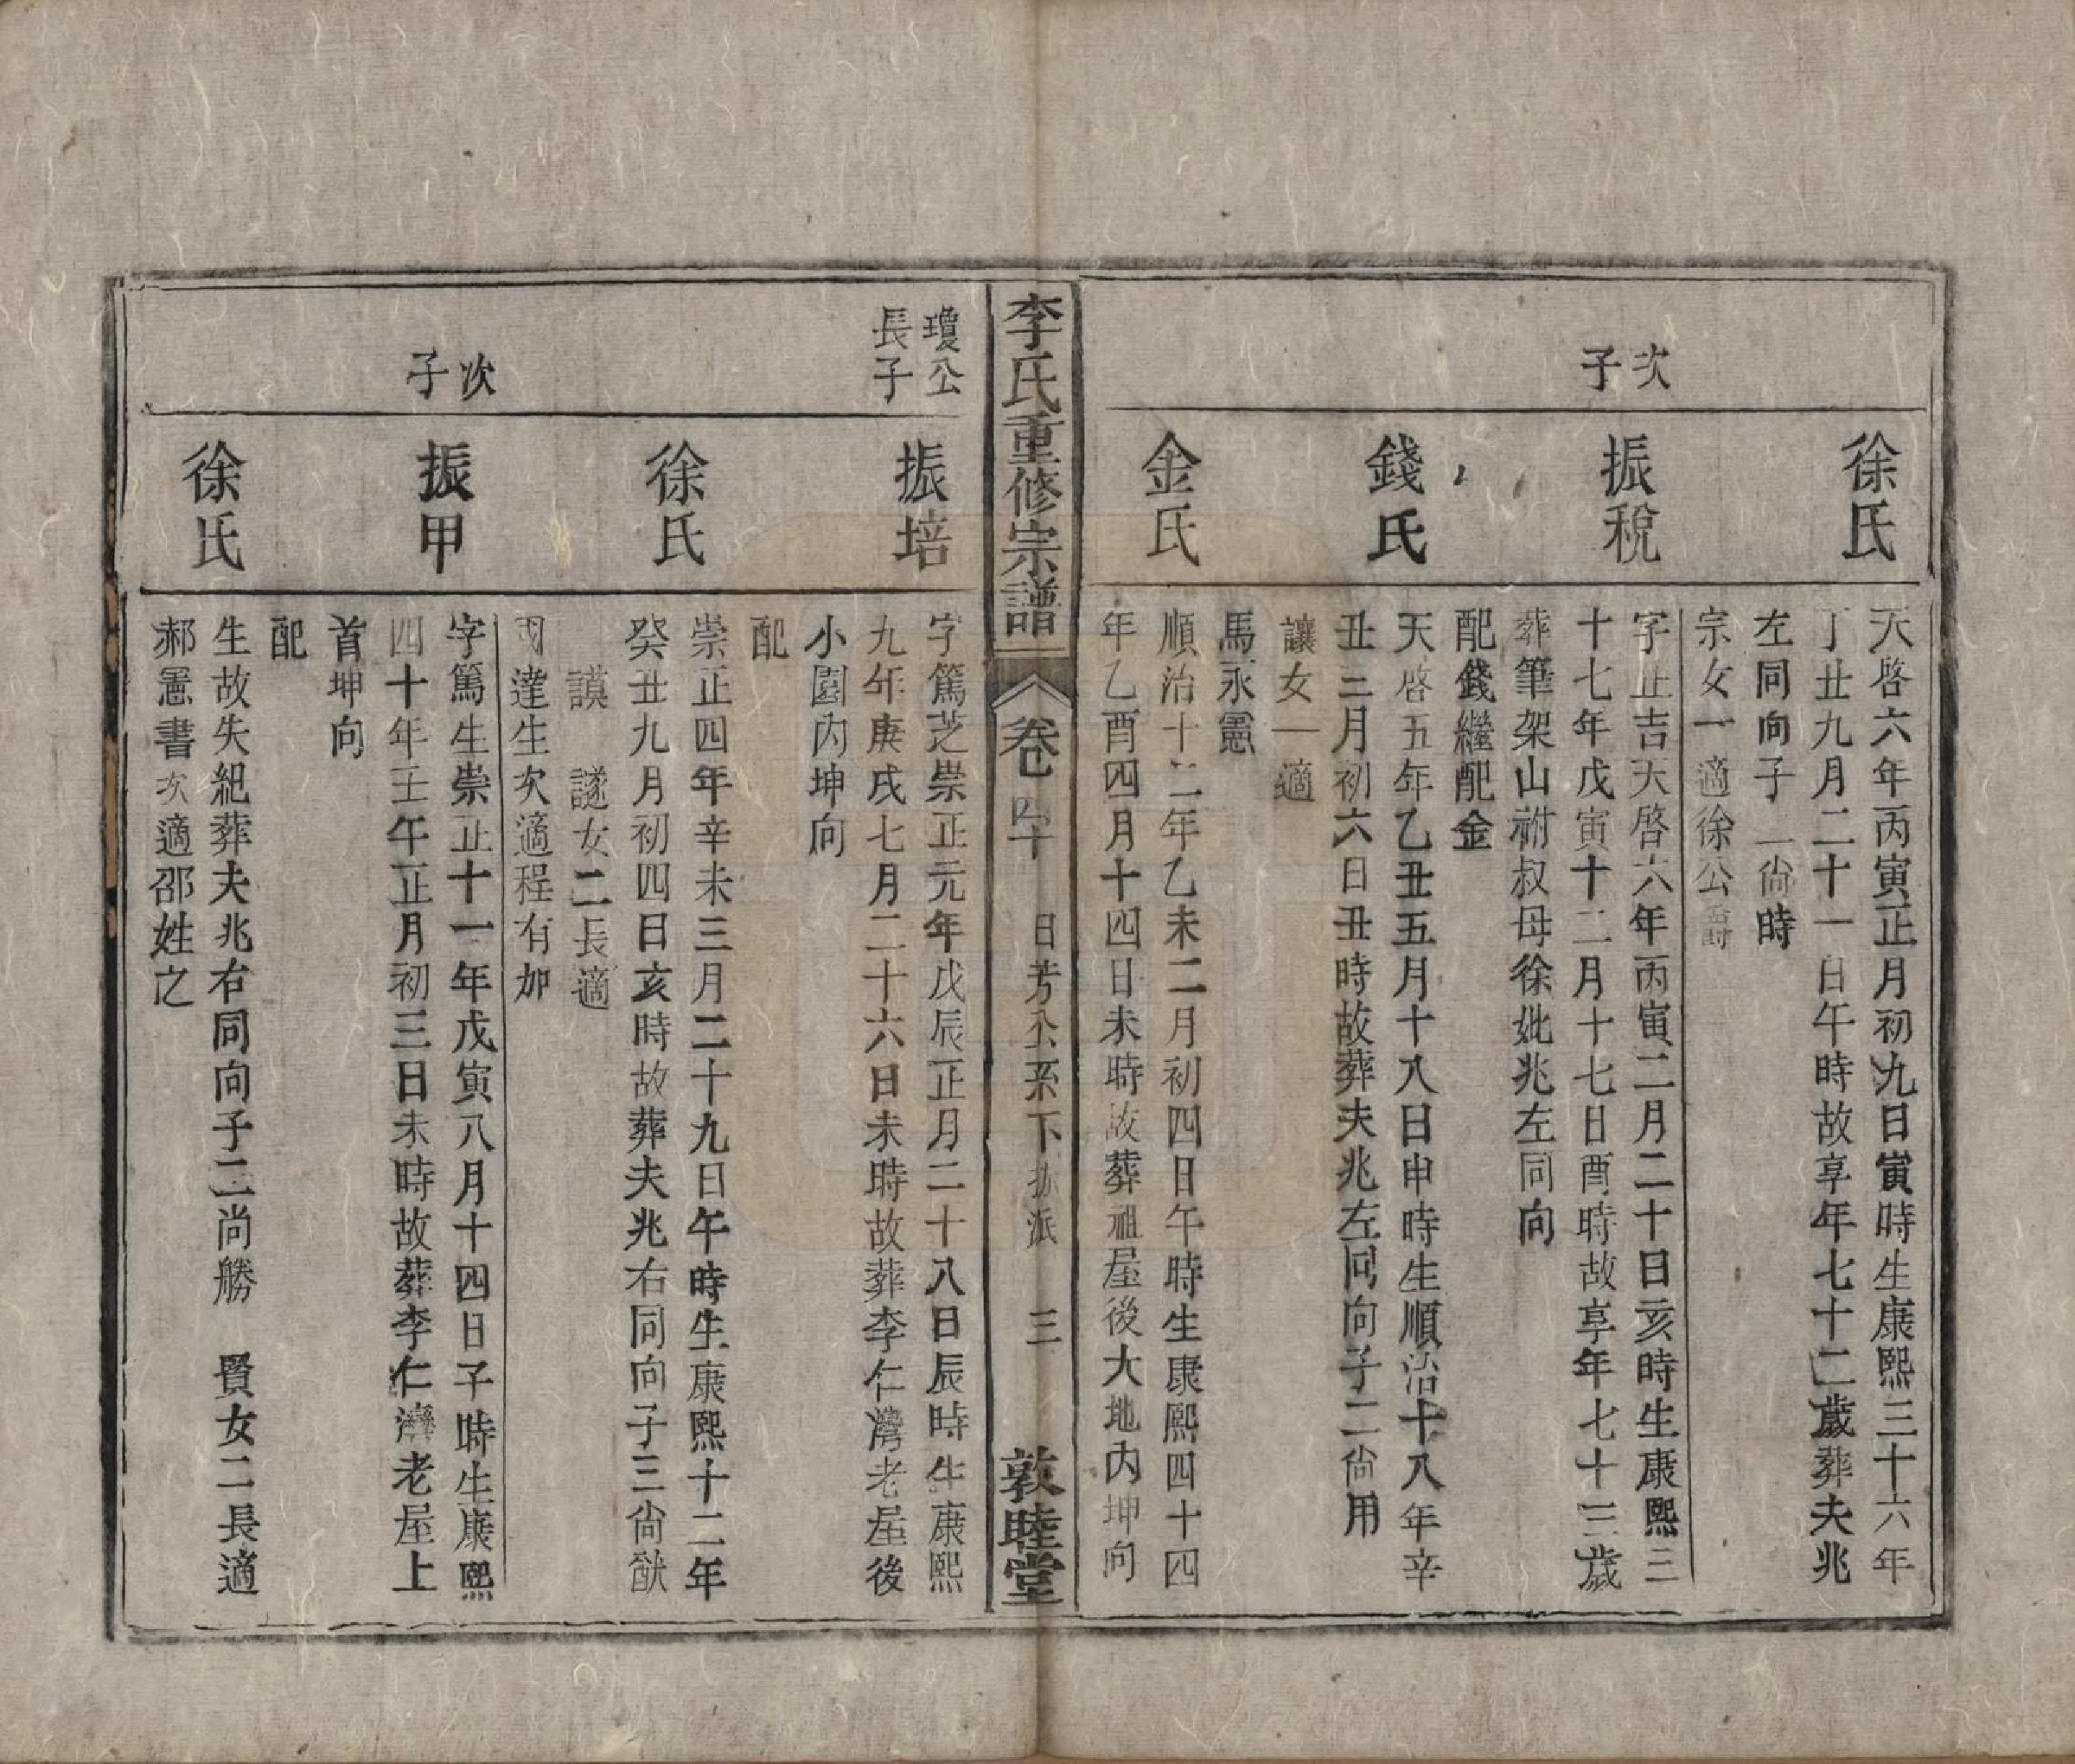 徐氏
天啓六年丙寅正月初九日寅時生康熙三十六年
丁丑九月二十一日午時故享年七十二歲葬夫兆
左同向子一尙時
宗女一適徐公
次子
振稅
字正吉天啓六年丙寅二月二十日亥時生康熙三
十七年戊寅十二月十七日酉時故享年七十三歲
葬筆架山祔叔母徐妣兆左同向
配錢繼配金
錢氏
天啓五年乙丑五月十八日申時生順治十八年辛
丑三月初六日丑時故葬夫兆左同向子二尙用
讓女一適
馬永憲
金氏
順治十二年乙未二月初四日午時生康熙四十四
年乙酉四月十四日未時故葬祖屋後大地內坤向
李氏重修宗譜
卷四十
日芳公系下振派
三
敦睦堂
瓊公
長子
振培
字篤芝崇正元年戊辰正月二十八日辰時生康熙
九年庚戌七月二十六日未時故葬李仁灣老屋後
小園內坤向
配
徐氏
崇正四年辛未三月二十九日午時生康熙十二年
癸丑九月初四日亥時故葬夫兆右同向子三尙猷
謨 謎女二長適
國達生次適程有加
次子
振甲
字篤生崇正十一年戊寅八月十四日子時生康熙
四十年壬午正月初三日未時故葬李仁灣老屋上
首坤向
配
徐氏
生故失紀葬夫兆右同向子二尚勝 賢女二長適
郝憲書次適邵姓之